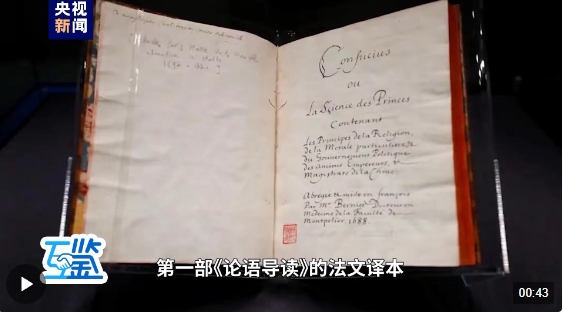 央视
新闻
Confucius
ou
La Science des Princes
Contenant
Les Principes de la Religion,
de la Morale particuliere,
du Gouvernement Politique
des anciens Empereurs, &
Magistrats de la Chine
Abregée & mise en françois
Par Mr Bernier Docteur en
Medecine de la Faculté de
Montpelier. 1688.
互鉴
第一部《论语导读》的法文译本
00:43